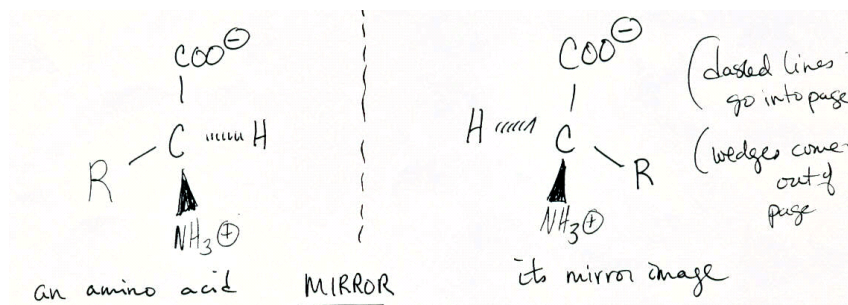 COO⊖
C
H
R
NH3⊕
an amino acid
MIRROR
COO⊖
H
C
R
NH3⊕
its mirror image
(dashed lines
go into page
(wedges come
out of
page